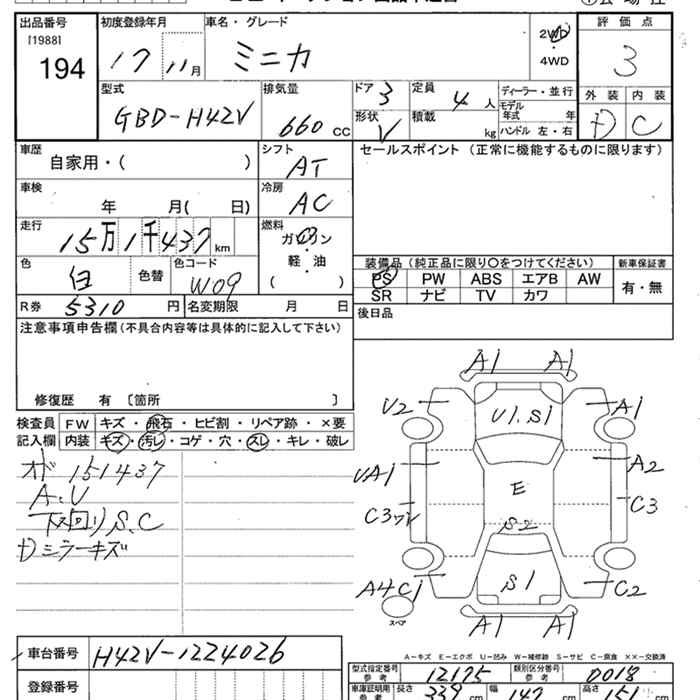 出品番号 初度登録年月 車名・グレード 評価点
[1988] 194 17 11月 ミニカ 2WD ・ 4WD 3
型式 排気量 ドア 3 定員 4 人 ディーラー・並行 外装 内装
GBD-H42V 660 CC 形状 V 積載 kg モデル年式 年 ハンドル 左・右 D C
車歴 自家用・( ) シフト AT セールスポイント (正常に機能するものに限ります)
車検 年 月( 日) 冷房 AC
走行 15万1千437 km 燃料 ガソリン ・ 軽・油 ( )
色 白 色替 色コード W09
装備品 (純正品に限り○をつけてください) 新車保証書
PS PW ABS エアB AW 有・無
SR ナビ TV カワ
R券 5310 円 名変期限 月 日 後日品
注意事項申告欄(不具合内容等は具体的に記入して下さい)
修復歴 有 [箇所 ]
検査員 FW キズ・飛石・ヒビ割・リペア跡・×要
記入欄 内装 キズ・汚レ・コゲ・穴・スレ・キレ・破レ
オド 151437
A.U
下回り S.C
Dミラーキズ
A1 A1
U2 U1.S1 A1
UA1 A2
E
C3ワレ C3
S2
A4C1 S1 C2
スペア
A1 A1
A-キズ E-エクボ U-凹み W-補修跡 S-サビ C-腐食 ××-交換済
車台番号 H42V-1224026
登録番号
型式指定番号 参考 12175 類別区分番号 参考 0018
車庫証明用 参考 長さ 339 cm 幅 147 cm 高さ 151 cm